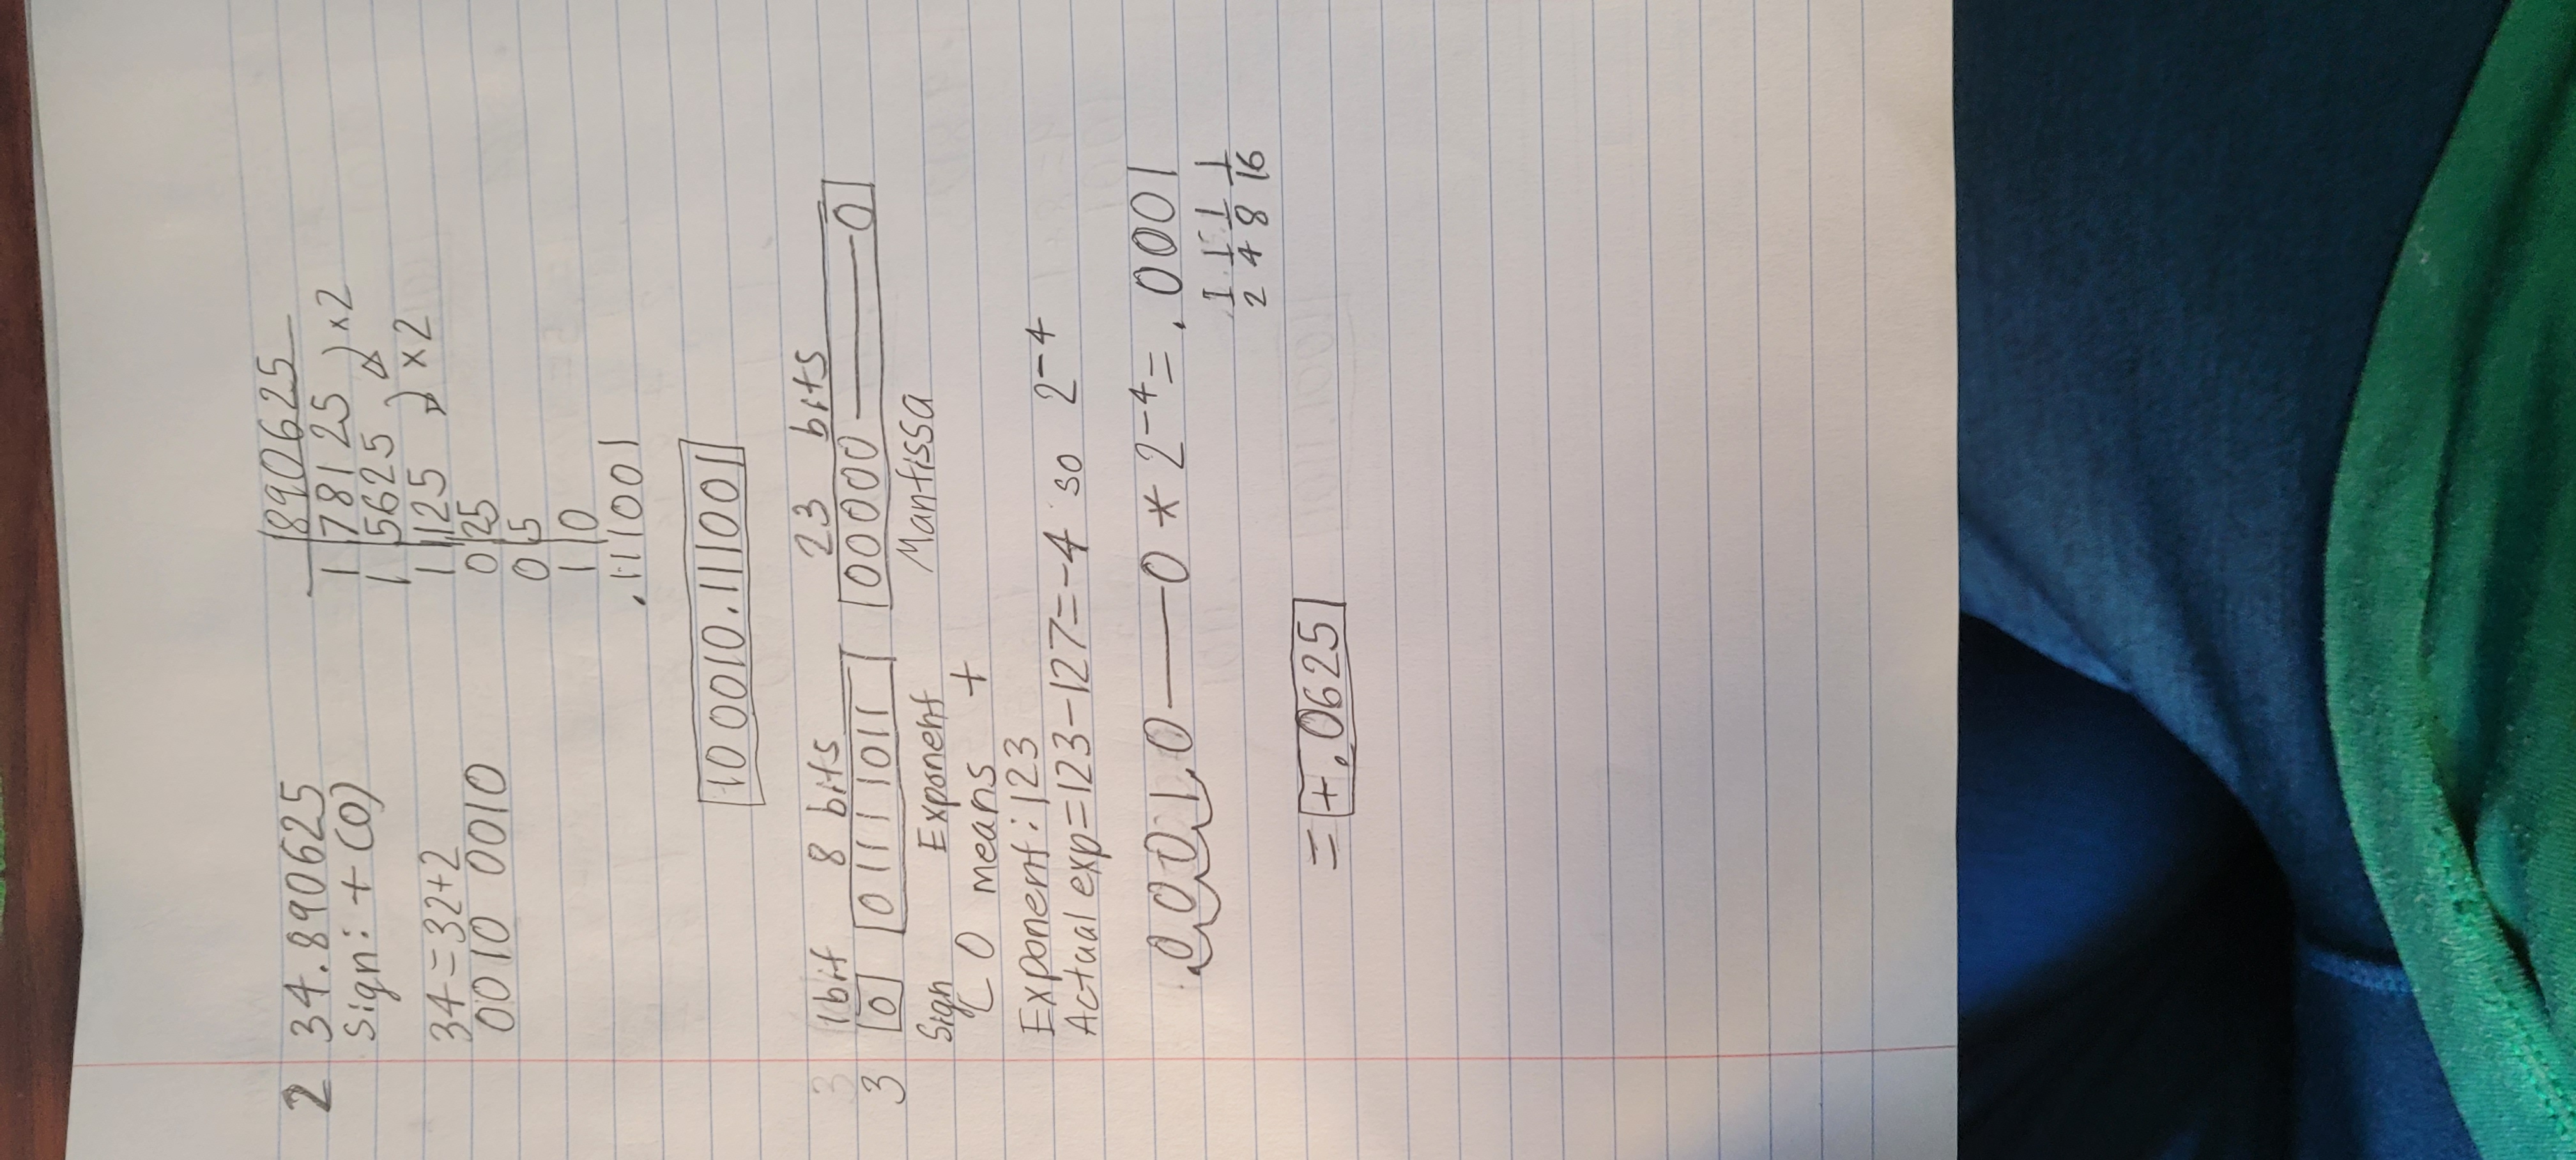 2 34.890625
Sign: + (0)
34=32+2
0010 0010
890625
1 78125 ×2
1 5625
1 125 ×2
0 25
0 5
1 0
.111001
100010.111001
1bit 8 bits 23 bits
3 0 01111011 00000——0
Sign Exponent Mantissa
0 means +
Exponent: 123
Actual exp=123-127=-4 so 2⁻⁴
.0001.0——0 * 2⁻⁴= .0001
1/2 1/4 1/8 1/16
= +.0625